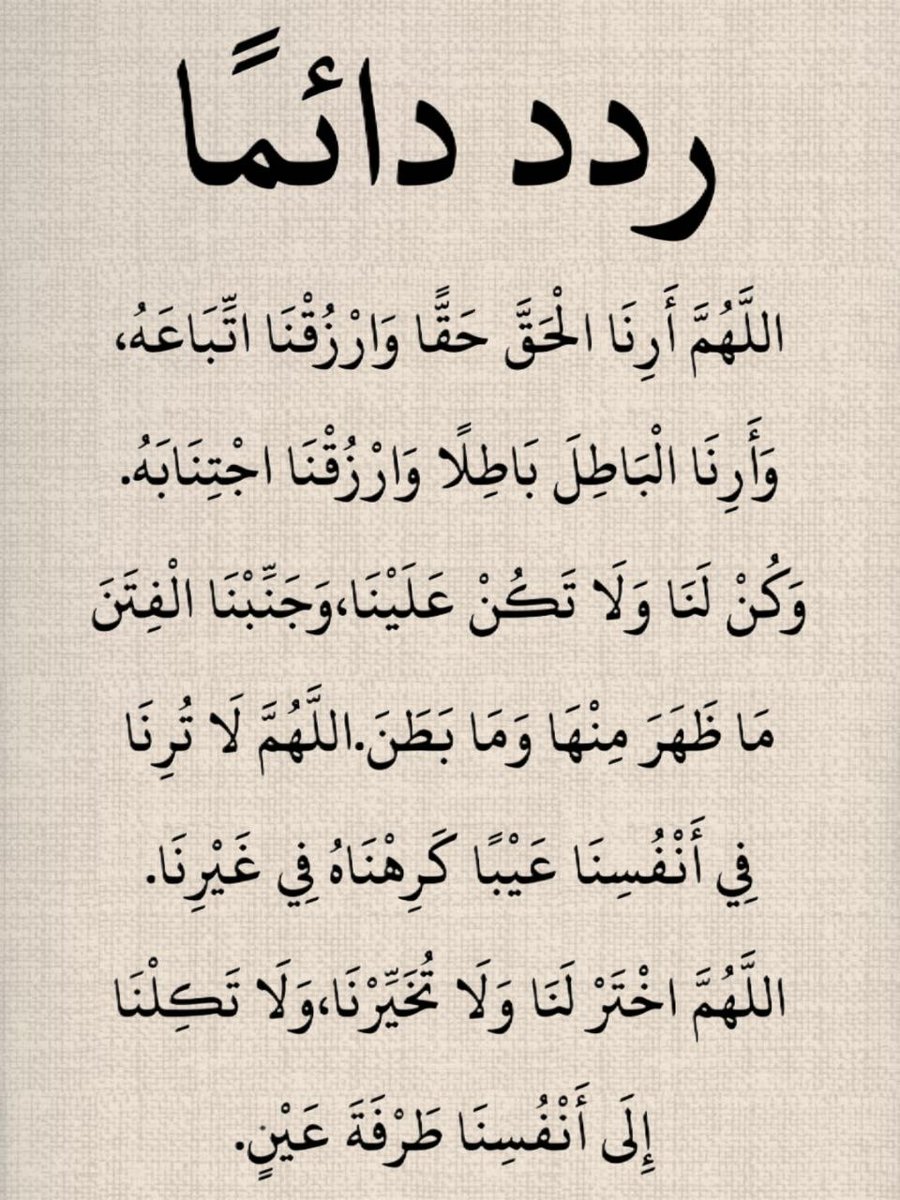 ردد دائمًا
اللَّهُمَّ أَرِنَا الْحَقَّ حَقًّا وَارْزُقْنَا اتِّبَاعَهُ،
وَأَرِنَا الْبَاطِلَ بَاطِلًا وَارْزُقْنَا اجْتِنَابَهُ.
وَكُنْ لَنَا وَلَا تَكُنْ عَلَيْنَا،وَجَنِّبْنَا الْفِتَنَ
مَا ظَهَرَ مِنْهَا وَمَا بَطَنَ.اللَّهُمَّ لَا تُرِنَا
فِي أَنْفُسِنَا عَيْبًا كَرِهْنَاهُ فِي غَيْرِنَا.
اللَّهُمَّ اخْتَرْ لَنَا وَلَا تُخَيِّرْنَا،وَلَا تَكِلْنَا
إِلَى أَنْفُسِنَا طَرْفَةَ عَيْنٍ.